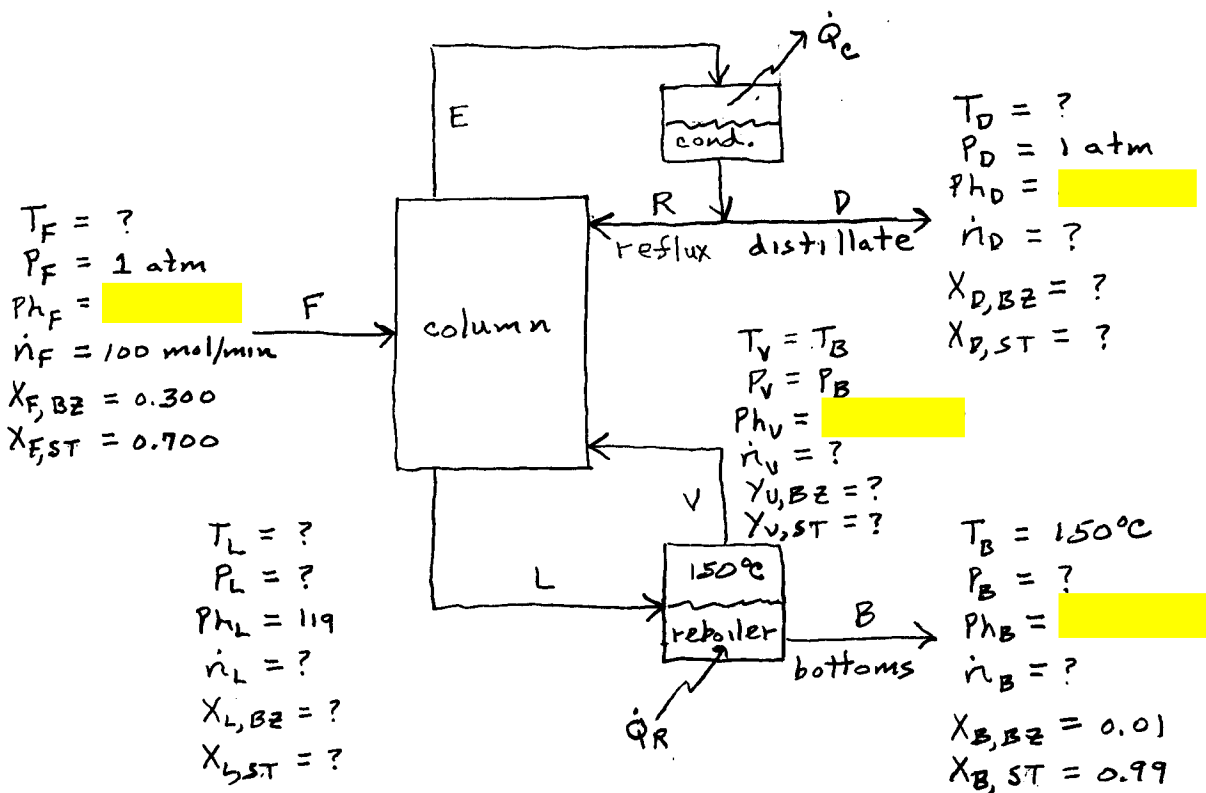 Q̇c
E
cond.
R
D
reflux
distillate
T_D = ?
P_D = 1 atm
Ph_D =
ṅ_D = ?
X_D,BZ = ?
X_D,ST = ?
T_F = ?
P_F = 1 atm
Ph_F =
ṅ_F = 100 mol/min
X_F,BZ = 0.300
X_F,ST = 0.700
F
column
T_V = T_B
P_V = P_B
Ph_V =
ṅ_V = ?
Y_V,BZ = ?
Y_V,ST = ?
V
T_L = ?
P_L = ?
Ph_L = liq
ṅ_L = ?
X_L,BZ = ?
X_L,ST = ?
L
150°C
reboiler
Q̇_R
B
bottoms
T_B = 150°C
P_B = ?
Ph_B =
ṅ_B = ?
X_B,BZ = 0.01
X_B,ST = 0.99